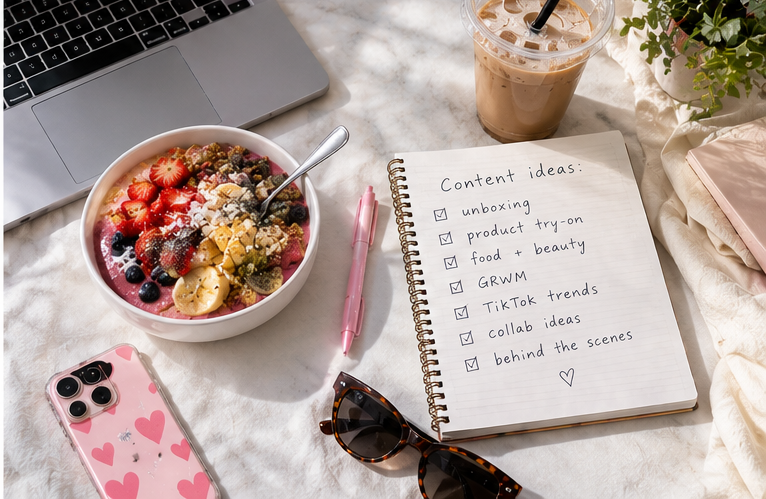 Content ideas:
unboxing
product try-on
food + beauty
GRWM
TikTok trends
collab ideas
behind the scenes